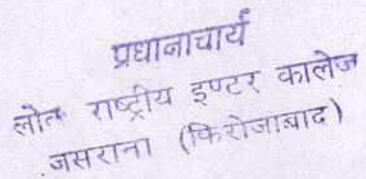 प्रधानाचार्य
लोक राष्ट्रीय इण्टर कालेज
जसराना (फिरोजाबाद)